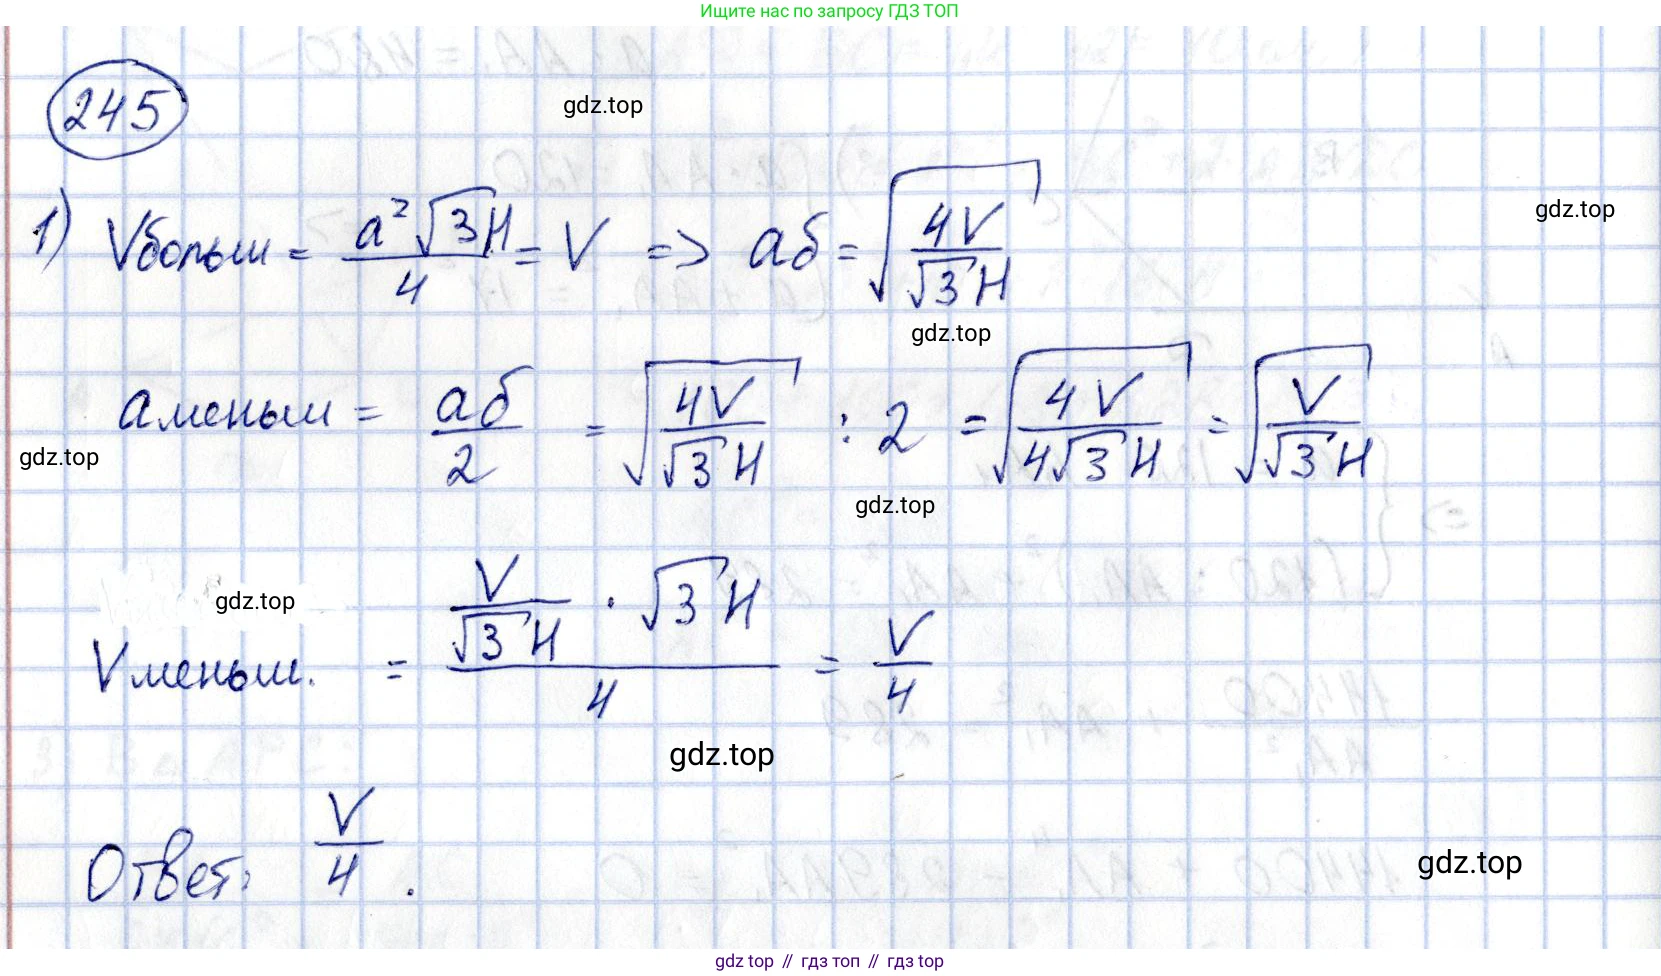 Ищите нас по запросу ГДЗ ТОП
245
gdz.top
1) Vбольш = a²√3H/4 = V => aб = √(4V/√3H)
gdz.top
gdz.top
aменьш = aб/2 = √(4V/√3H) : 2 = √(4V/4√3H) = √(V/√3H)
gdz.top
gdz.top
gdz.top
Vменьш. = (V/√3H · √3H)/4 = V/4
gdz.top
Ответ: V/4.
gdz.top
gdz top // гдз топ // gdz top